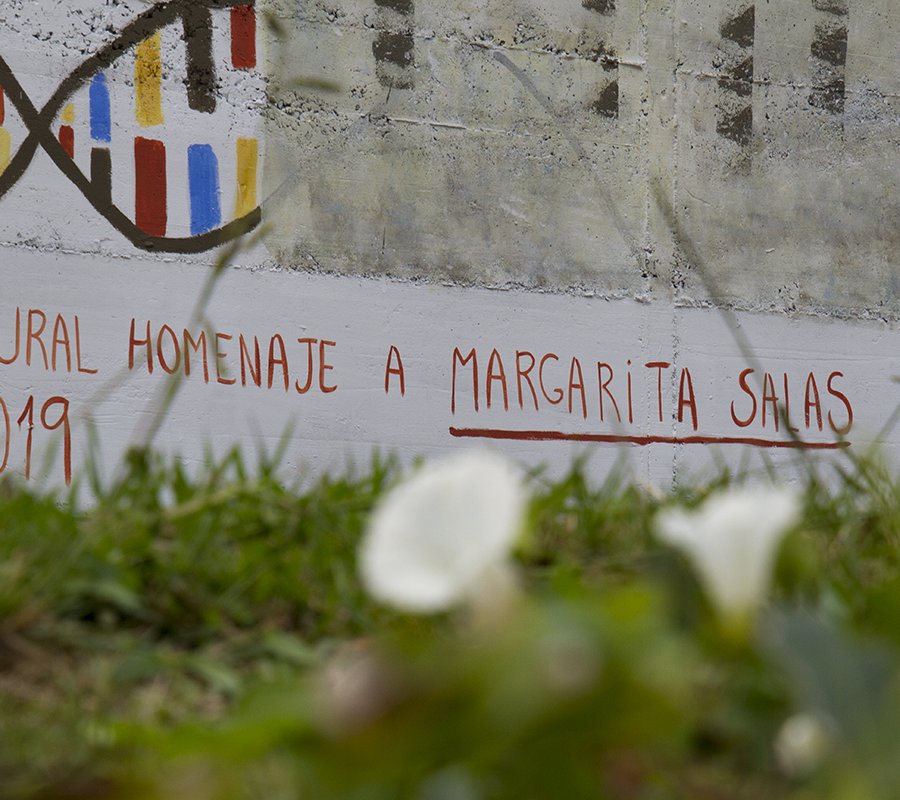 URAL HOMENAJE A MARGARITA SALAS
019